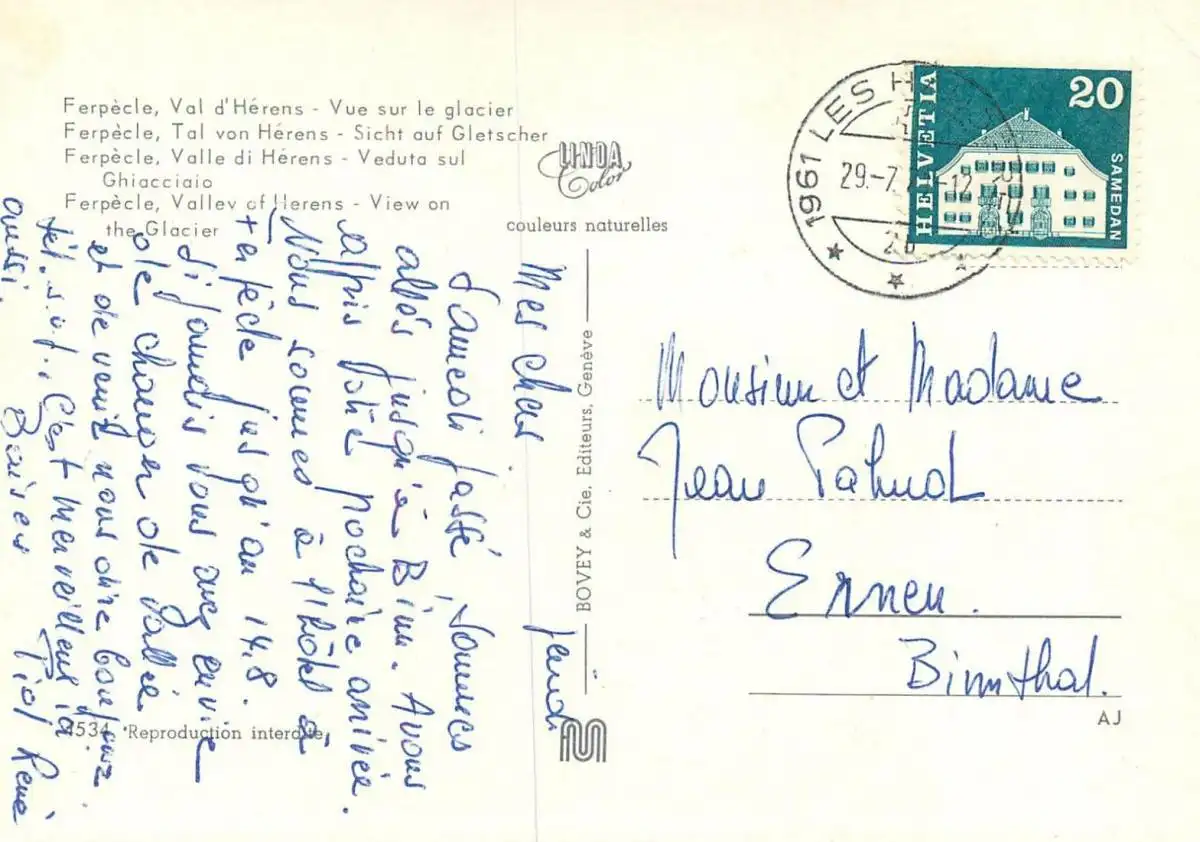 Ferpècle, Val d'Hérens - Vue sur le glacier
Ferpècle, Tal von Hérens - Sicht auf Gletscher
Ferpècle, Valle di Hérens - Veduta sul
Ghiacciaio
Ferpècle, Valley of Herens - View on
the Glacier
LINDA
Color
couleurs naturelles
1961 LES H
29.-7.
HELVETIA
20
SAMEDAN
jeudi
Mes chers
Samedi passé, sommes
allés jusqu'à Binn. Avons
appris votre prochaine arrivée.
Nous sommes à l'hôtel à
Ferpècle jusqu'au 14.8.
Si jamais vous avez envie
de changer de vallée
et de venir nous dire bonjour
tél. s.v.p. C'est merveilleux ici
aussi. Baisers René
BOVEY & Cie. Editeurs, Genève
Monsieur et Madame
Jean Pahud
Ernen.
Binnthal.
AJ
4534 Reproduction interdite